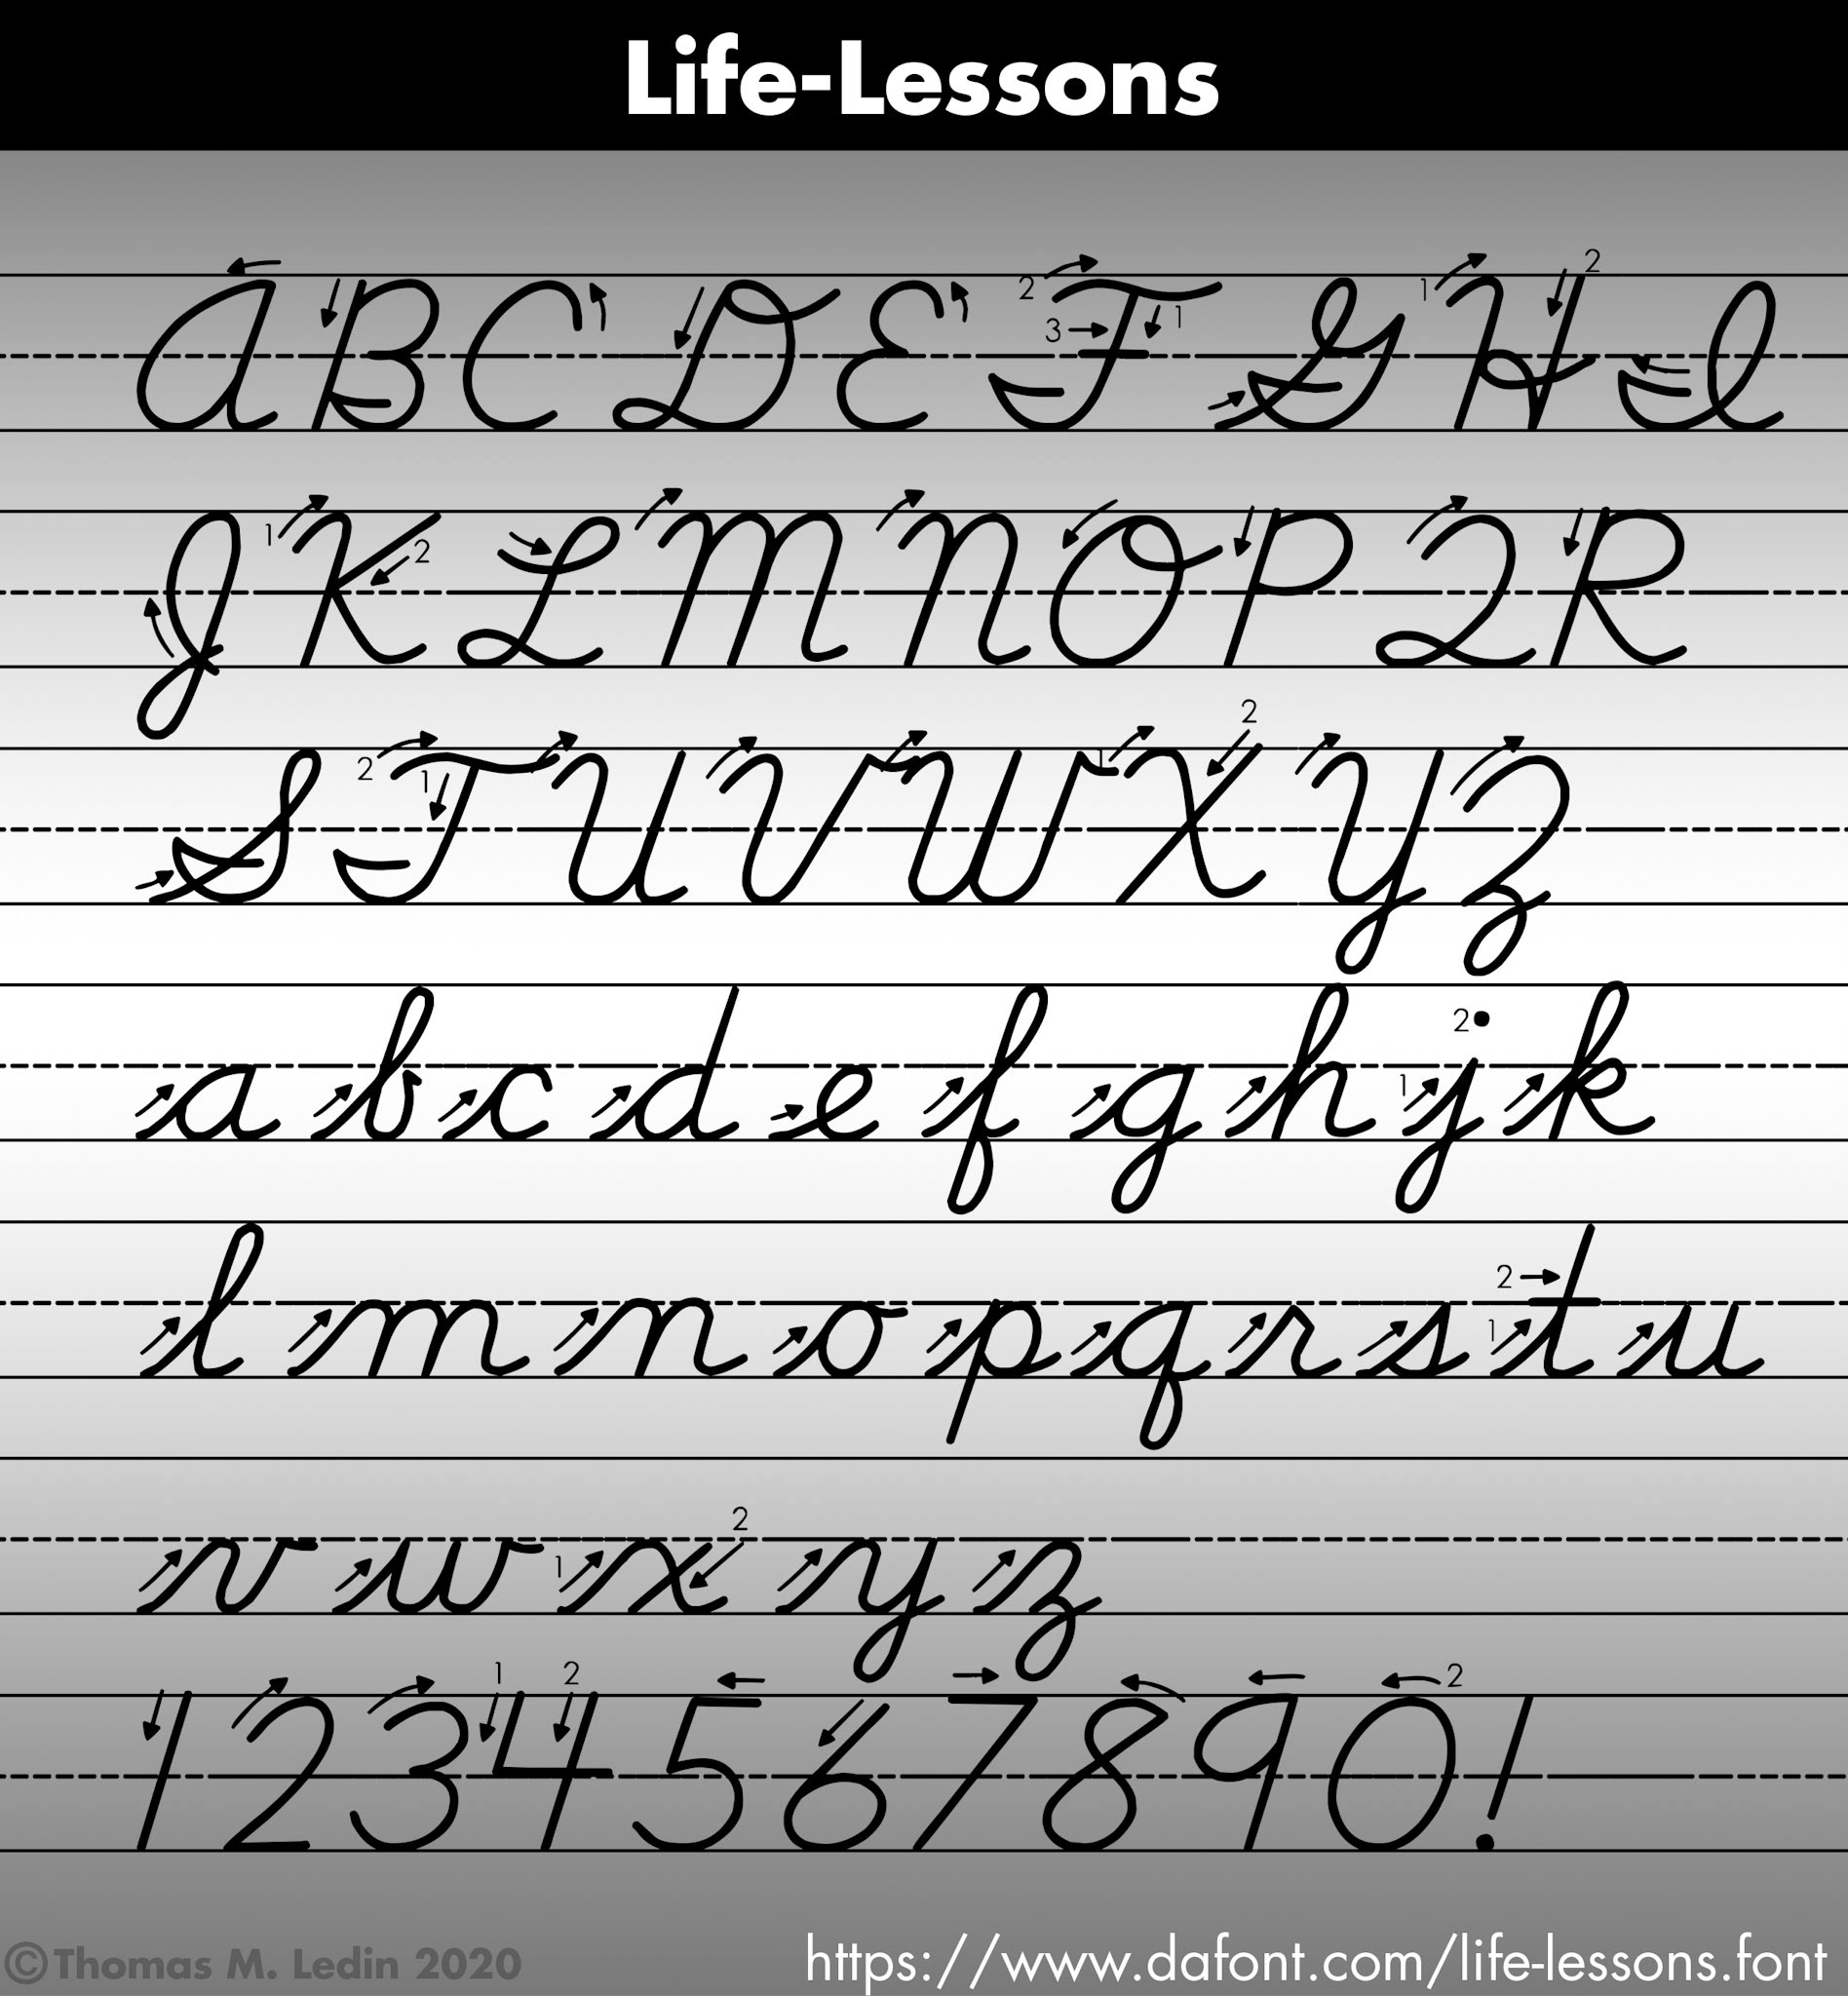 Life-Lessons
A B C D E F G H I
J K L M N O P Q R
S T U V W X Y Z
a b c d e f g h j k
l m n o p q r s t u
v w x y z
1 2 3 4 5 6 7 8 9 0 !
©Thomas M. Ledin 2020
https://www.dafont.com/life-lessons.font